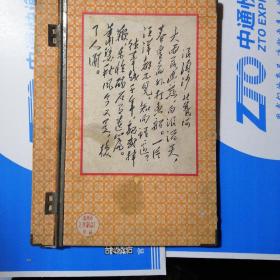 浪淘沙 北戴河
大雨落幽燕，白浪滔天，
秦皇岛外打鱼船。一片
汪洋都不见，知向谁边？
往事越千年，魏武挥
鞭，东临碣石有遗篇。
萧瑟秋风今又是，换
了人间。
中通快
ZTO EXP
ZTO